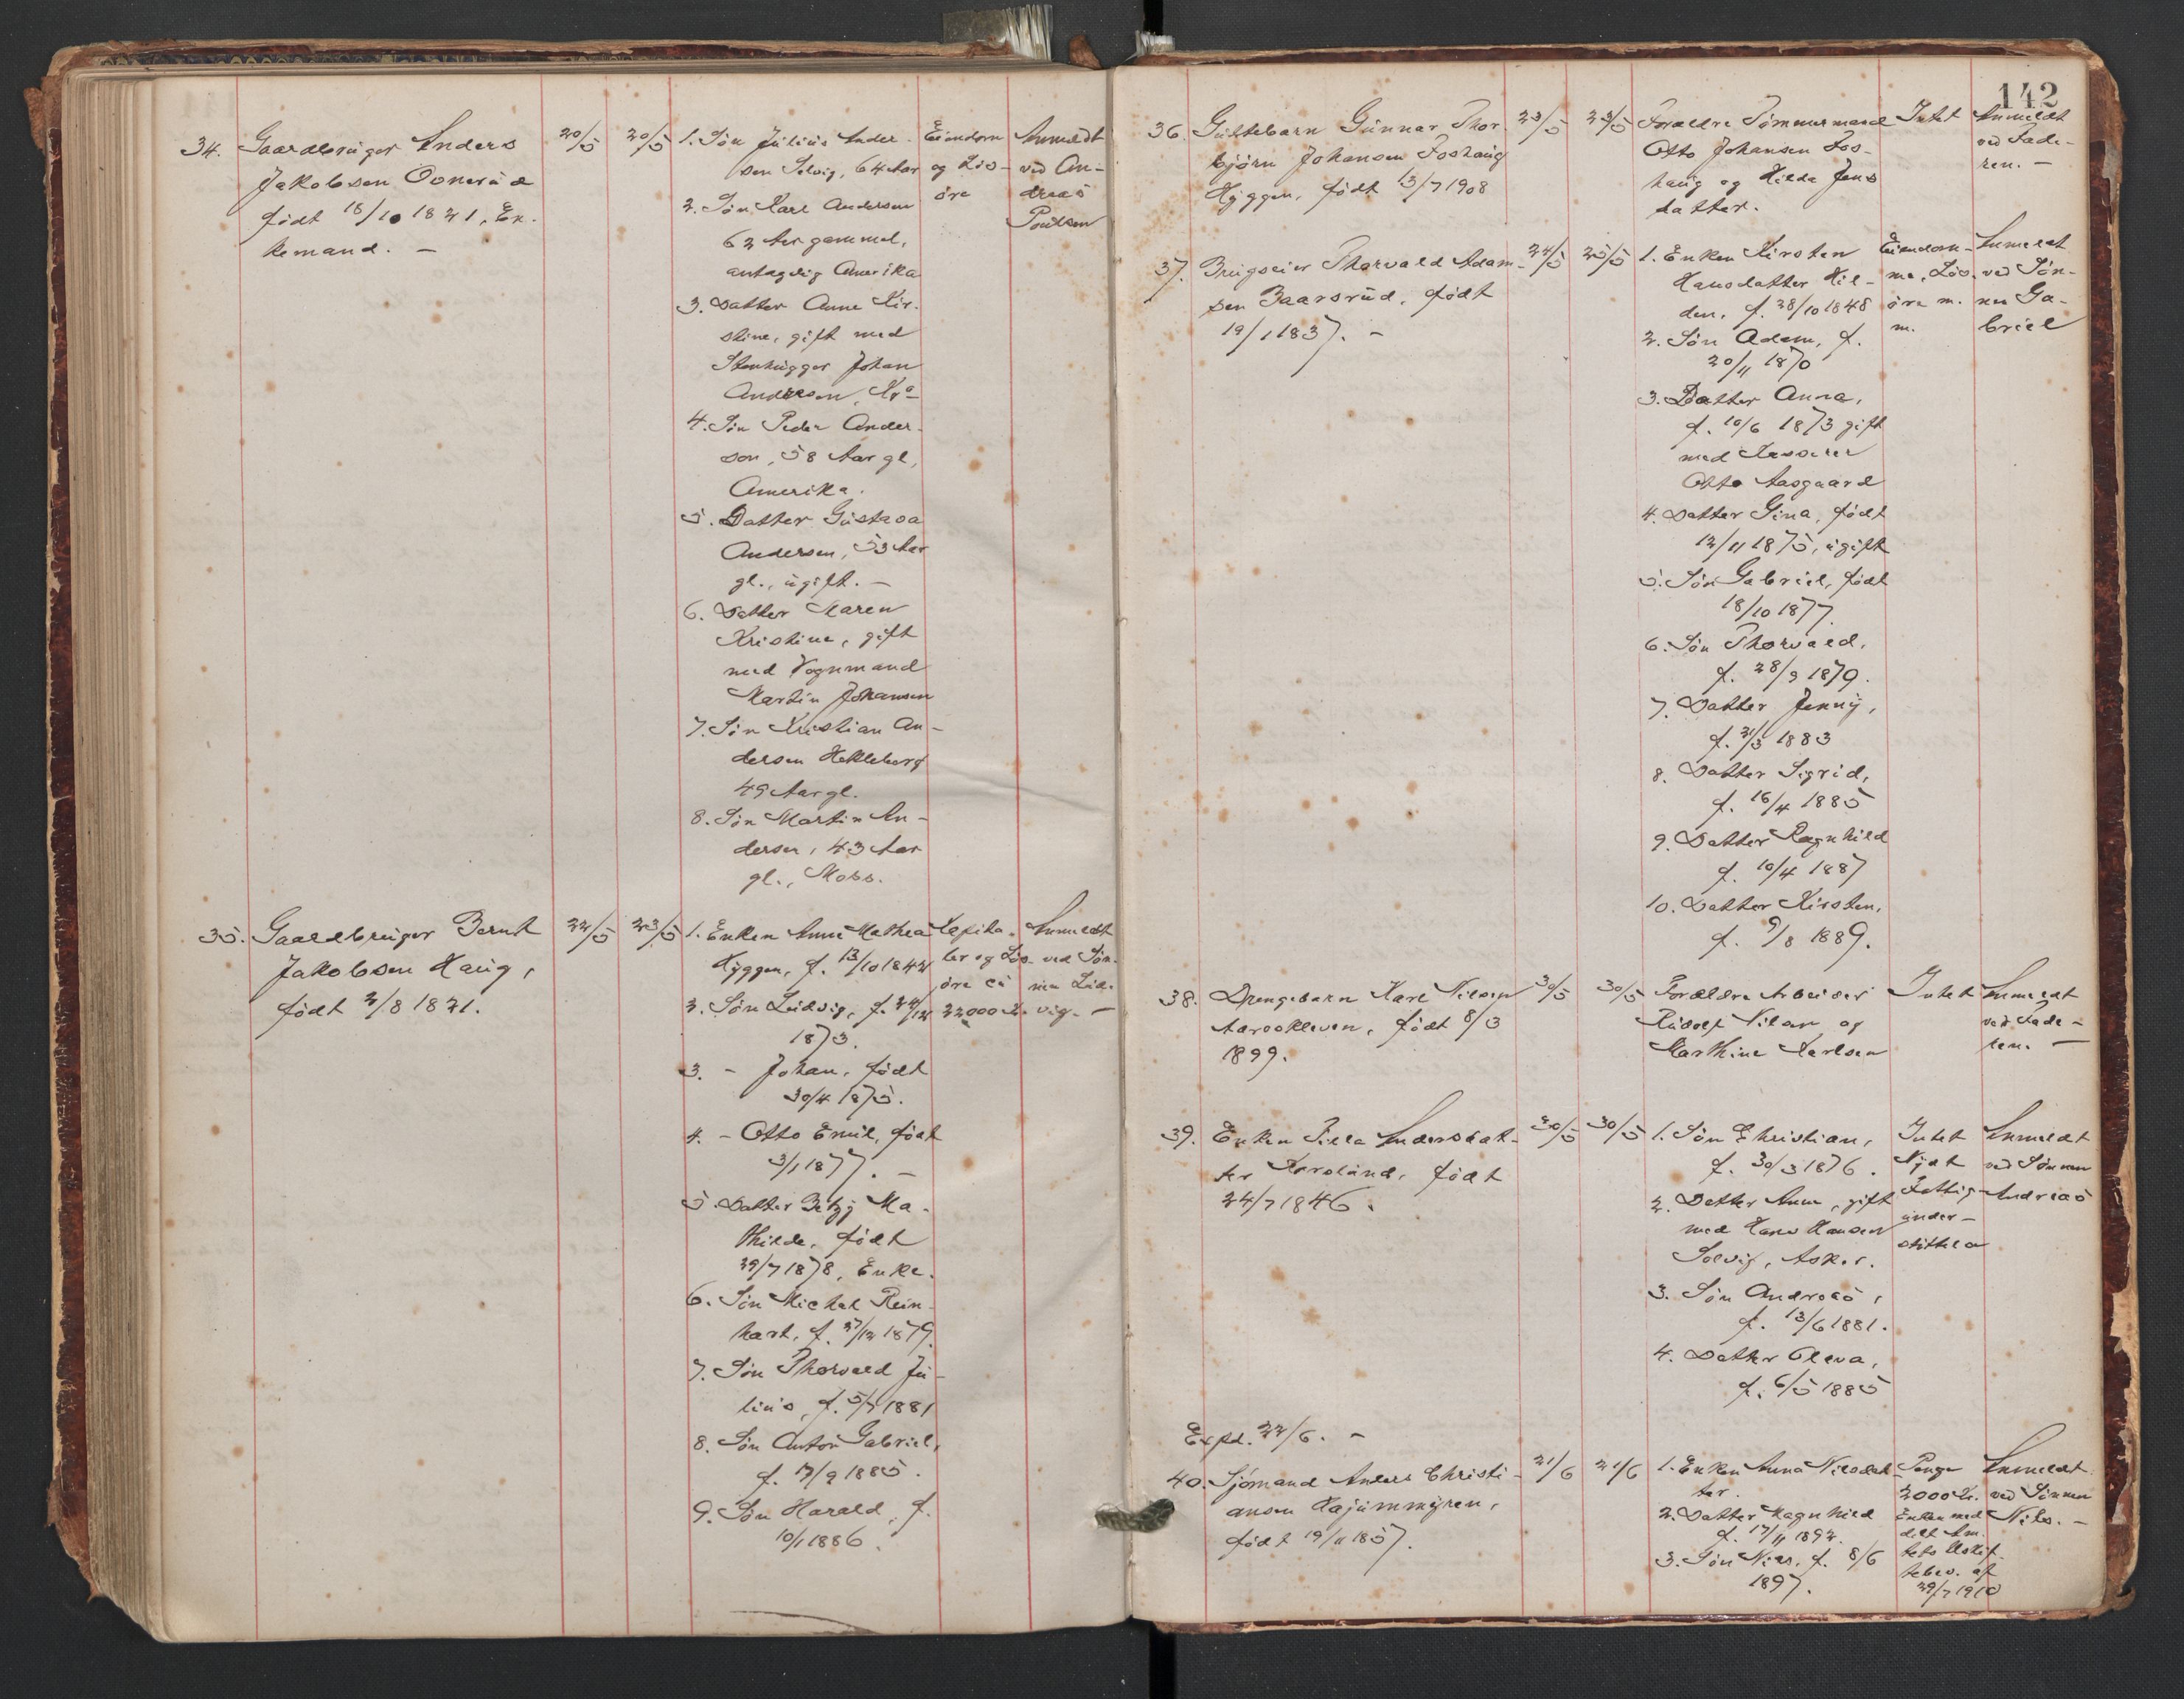 34. Gaardbruger Anders
Jakobsen Oonerud
født 18/10 1821, En-
kemand. —
20/5
20/5
1. Søn Julius Ander-
sen Solvig, 64 Aar
2. Søn Karl Andersen
62 Aar gammel,
antagelig Amerika
3. Datter Anne Kir-
stine, gift med
Stenhugger Johan
Andersen, Kra
4. Søn Peder Ander-
sen, 58 Aar gl,
Amerika.
5. Datter Gustava
Andersen, 53 Aar
gl., ugift. —
6. Datter Maren
Kristine, gift
med Vognmand
Martin Johansen
7. Søn Kristian An-
dersen Hekleberg
49 Aar gl.
8. Søn Martin An-
dersen, 43 Aar
gl., Moss.
Eiendom
og Løs-
øre
Anmeldt
ved An-
dreas
Poulsen
35. Gaardbruger Bernt
Jakobsen Haug,
født 2/8 1821.
22/5
23/5
1. Enken Anne Mathea
Hyggen, f. 13/10 1842
2. Søn Ludvig, f. 22/12
1873.
3. - Johan, født
30/4 1875.
4. - Otto Emil, født
3/1 1877. —
5. Datter Betzy Ma-
thilde, født
29/7 1878, Enke.
6. Søn Michal Rein-
hart, f. 27/12 1879
7. Søn Thorvald Ju-
lius, f. 5/7 1881
8. Søn Anton Gabriel,
f. 17/9 1885.
9. Søn Harald, f.
10/1 1886.
Kapita-
ler og Løs-
øre ca
22000 Kr.
Anmeldt
ved Søn-
nen Lud-
vig. —
142
36. Guttebarn Gunnar Thor-
bjørn Johansen Foshaug
Hyggen, født 13/7 1908
23/5
23/5
Forældre Tømmermand
Otto Johansen Fos-
haug og Hilda Jens
datter.
Intet
Anmeldt
ved Fade-
ren. —
37. Brugseier Thorvald Adam-
sen Baarsrud, født
19/1 1837. —
24/5
25/5
1. Enken Kirsten
Hansdatter Hil-
den, f. 28/10 1848
2. Søn Adam, f.
20/11 1870
3. Datter Anna,
f. 10/6 1873 gift
med Kasserer
Otto Aasgaard
4. Datter Gina, født
12/11 1875, ugift
5. Søn Gabriel, født
18/10 1877
6. Søn Thorvald,
f. 28/9 1879.
7. Datter Jenny,
f. 21/3 1883
8. Datter Sigrid,
f. 16/4 1885
9. Datter Ragnhild
f. 10/4 1887
10. Datter Kirsten,
f. 9/8 1889.
Eiendom-
me, Løs-
øre m.
m.
Anmeldt
ved Søn-
nen Ga-
briel
38. Drengebarn Karl Nilsen
Aarookleven, født 8/3
1899.
30/5
30/5
Forældre Arbeider
Rudolf Nilsen og
Marthine Karlsen
Intet
Anmeldt
ved Fade-
ren. —
39. Enken Pilla Andersdat-
ter Kroslund, født
24/7 1846.
30/5
30/5
1. Søn Christian,
f. 30/3 1876.
2. Datter Anne, gift
med Hans Hansen
Solvig, Asker.
3. Søn Andreas,
f. 13/6 1881.
4. Datter Oleva,
f. 6/5 1885
Intet
Nydt
Fattig-
under-
støttelse
Anmeldt
ved Sønnen
Andreas
Expd. 22/6. —
40. Sjømand Anders Christi-
ansen Hajummyren,
født 19/11 1857.
21/6
21/6
1. Enken Anna Nilsdat-
ter.
2. Datter Ragnhild
f. 17/11 1892.
3. Søn Nils, f. 8/6
1897.
Penge
2000 Kr.
Enken med
delt Am-
tets Uskif-
tebev. af
29/7 1910
Anmeldt
ved Sønnen
Nils. —